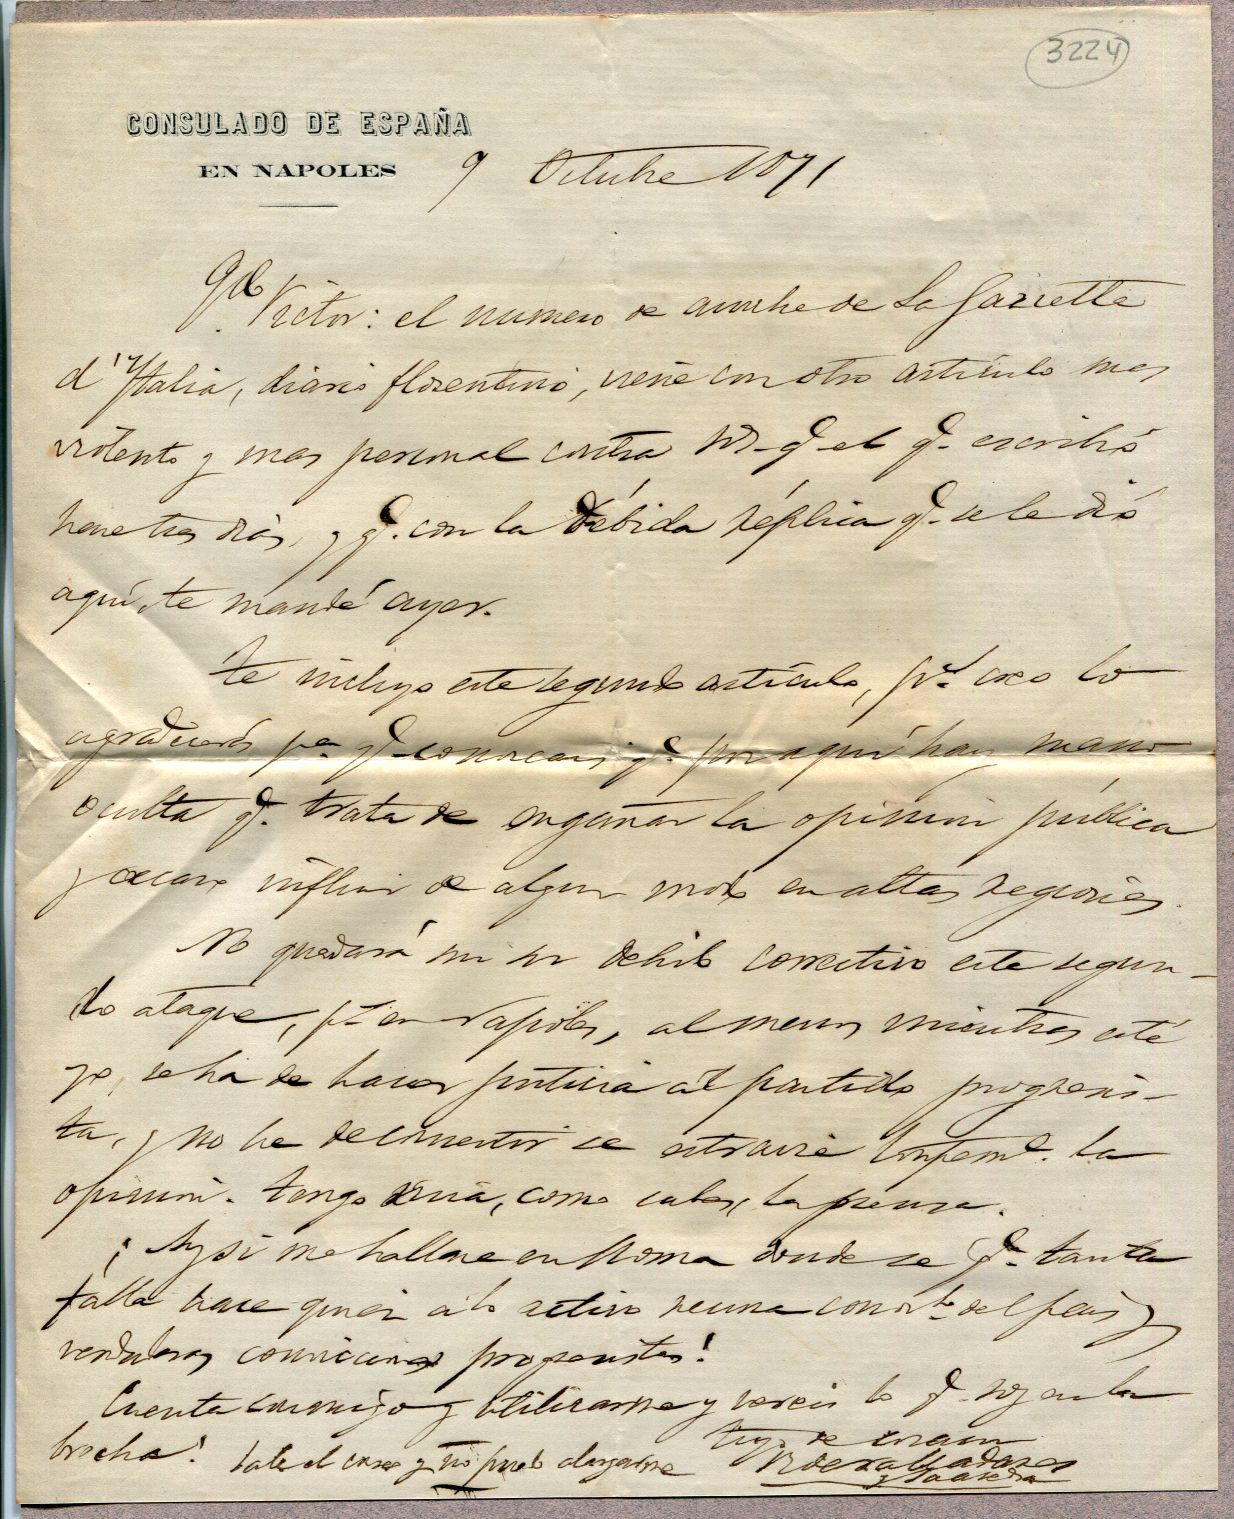 3224
CONSULADO DE ESPAÑA
EN NAPOLES
9 Octubre 1871
Qdo Victor: el numero de anoche de La Gazzetta
d'Italia, diario florentino, viene con otro artículo mas
violento y mas personal contra q. el q. escribió
hace tres dias, y q. con la débida réplica q. se le dió
aquí, te mandé ayer.
Te incluyo este segundo artículo, pr. caso lo
agradecerás pa. q. conozcais q. por aquí hay mano
oculta q. trata de engañar la opinion pública
y acaso influir de algun modo en altas regiones.
No quedará sin su debido correctivo este segun-
do ataque, pr. en Napoles, al menos mientras esté
yo, se ha de hacer justicia al partido progresis-
ta, y no he de consentir se extravie la
opinion. Tengo como sabes, la prensa.
¡Ay si me hallase en Roma donde se q. tanta
falta hace quien á lo activo reuna conocto. del pais y
verdaderas convicciones progresistas!
Cuenta conmigo y utilizarme y vereis lo q. soy en la
brecha! Sale el correo y no puedo alargarme
tuyo de corazon
R de Valladares
y Saavedra